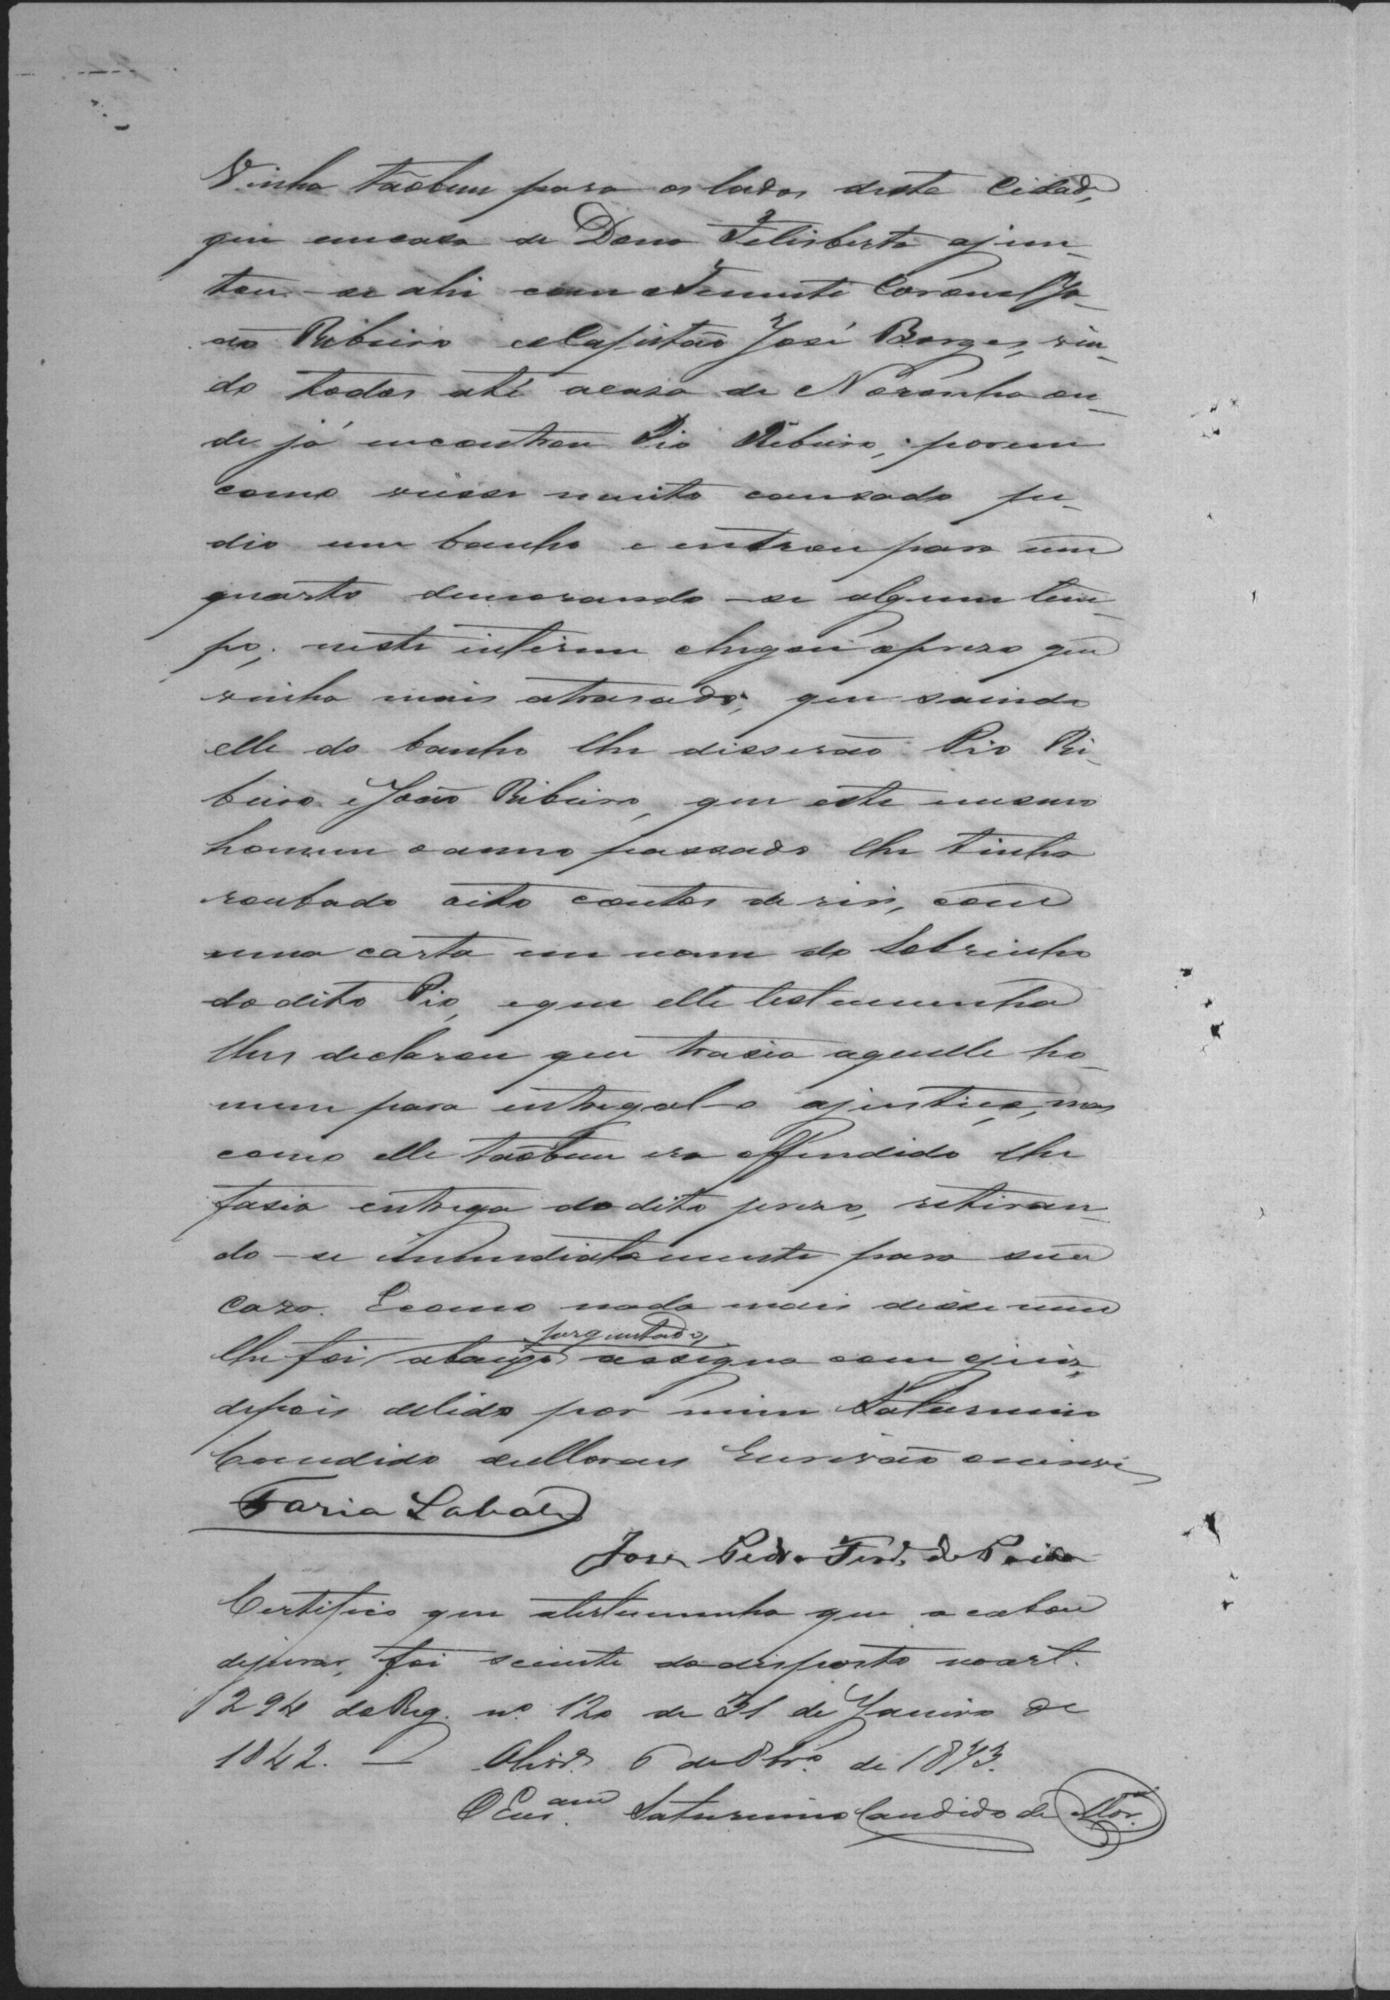 Vinha tãobem para os lados desta Cidade,
que em casa de Dona Felisberta ajun-
tou-se ahi com o Tenente Coronel Jo-
ão Ribeiro e o Capistão José Borges, vin-
do todos até acasa de Noronha on-
de já encontrou Pio Ribeiro, porem
como viesse muito cansado pe-
dio um banho e entrou para um
quarto demorando-se algum tem-
po, neste interim chegou o prezo que
vinha mais atrasado; que saindo
elle do banho lhe disserão Pio Ri-
beiro e João Ribeiro, que este mesmo
homem o anno passado lhe tinha
roubado oito contos de reis, com
uma carta em nome do Sobrinho
do dito Pio, e que elle testemunha
lhes declarou que trasia aquelle ho-
mem para entregal-o ajustiça, mas
como elle tãobem era offendido lhe
fasia entrega do dito prezo, retiran-
do-se immediatamente para sua
Caza. E como nada mais disse nem
perguntado,
lhe foi abaixo assigna com o juiz,
depois de lido por mim Saturnino
Candido de Moraes Escrivão o escrevi
Faria Lobato
José Pedro Ferd. de Paiva
Certifico que atestemunha que acabou
dejurar, foi sciente do disposto no art.
294 do Reg. nº 120 de 31 de Janeiro de
1842. — 6 de de 1873.
O Escr.am Saturnino Candido de Mor.